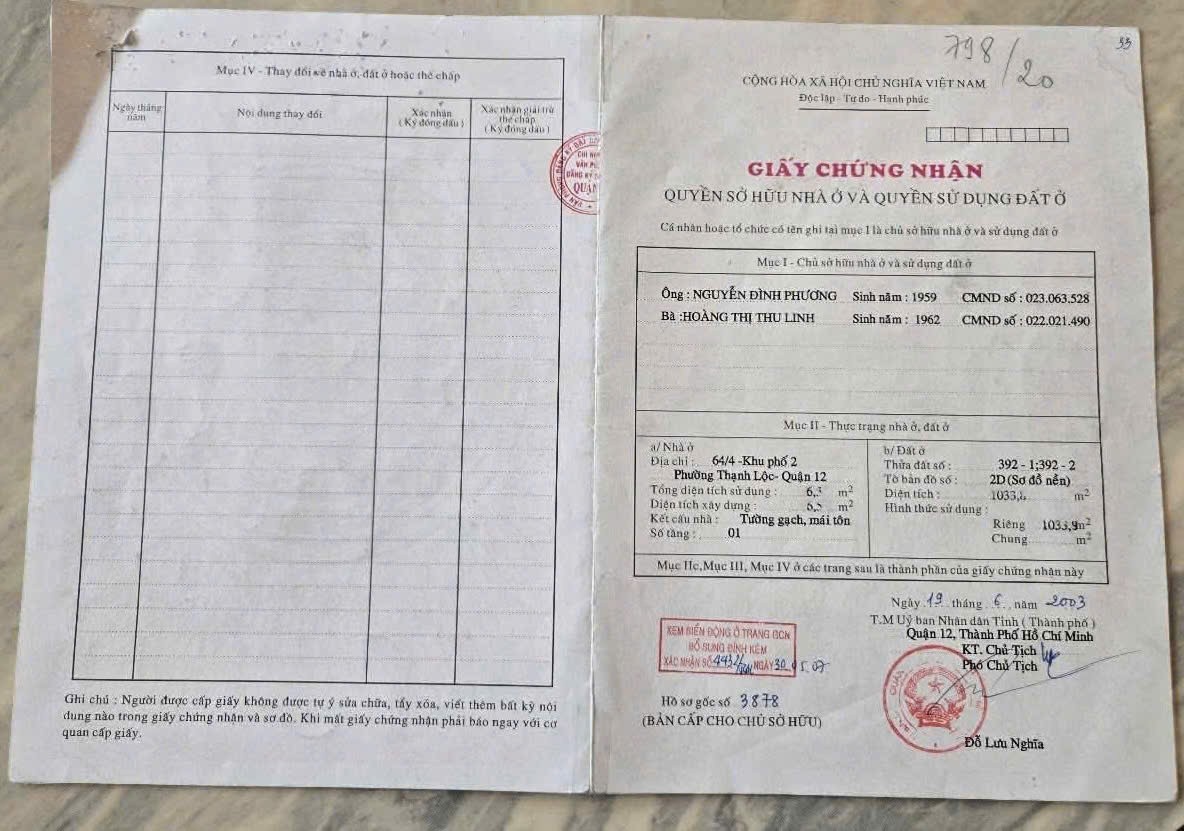 Mục IV - Thay đổi về nhà ở, đất ở hoặc thế chấp
Ngày tháng năm
Nội dung thay đổi
Xác nhận
( Ký đóng dấu )
Xác nhận giải trừ thế chấp
( Ký đóng dấu )
Ghi chú : Người được cấp giấy không được tự ý sửa chữa, tẩy xóa, viết thêm bất kỳ nội
dung nào trong giấy chứng nhận và sơ đồ. Khi mất giấy chứng nhận phải báo ngay với cơ
quan cấp giấy.
798/20
33
CỘNG HÒA XÃ HỘI CHỦ NGHĨA VIỆT NAM
Độc lập - Tự do - Hạnh phúc
GIẤY CHỨNG NHẬN
QUYỀN SỞ HỮU NHÀ Ở VÀ QUYỀN SỬ DỤNG ĐẤT Ở
Cá nhân hoặc tổ chức có tên ghi tại mục I là chủ sở hữu nhà ở và sử dụng đất ở
Mục I - Chủ sở hữu nhà ở và sử dụng đất ở
Ông : NGUYỄN ĐÌNH PHƯƠNG Sinh năm : 1959 CMND số : 023.063.528
Bà :HOÀNG THỊ THU LINH Sinh năm : 1962 CMND số : 022.021.490
Mục II - Thực trạng nhà ở, đất ở
a/ Nhà ở
Địa chỉ : 64/4 -Khu phố 2
Phường Thạnh Lộc- Quận 12
Tổng diện tích sử dụng : m²
Diện tích xây dựng : m²
Kết cấu nhà : Tường gạch, mái tôn
Số tầng : 01
b/ Đất ở
Thửa đất số : 392 - 1;392 - 2
Tờ bản đồ số : 2D (Sơ đồ nền)
Diện tích : m²
Hình thức sử dụng :
Riêng 1033,9m²
Chung m²
Mục IIc,Mục III, Mục IV ở các trang sau là thành phần của giấy chứng nhận này
Ngày 19 tháng 6 năm 2003
T.M Uỷ ban Nhân dân Tỉnh ( Thành phố )
Quận 12, Thành Phố Hồ Chí Minh
KT. Chủ Tịch
Phó Chủ Tịch
Đỗ Lưu Nghĩa
XEM BIẾN ĐỘNG Ở TRANG GCN
BỔ SUNG ĐÍNH KÈM
XÁC NHẬN SỐ NGÀY 30
Hồ sơ gốc số 3878
(BẢN CẤP CHO CHỦ SỞ HỮU)